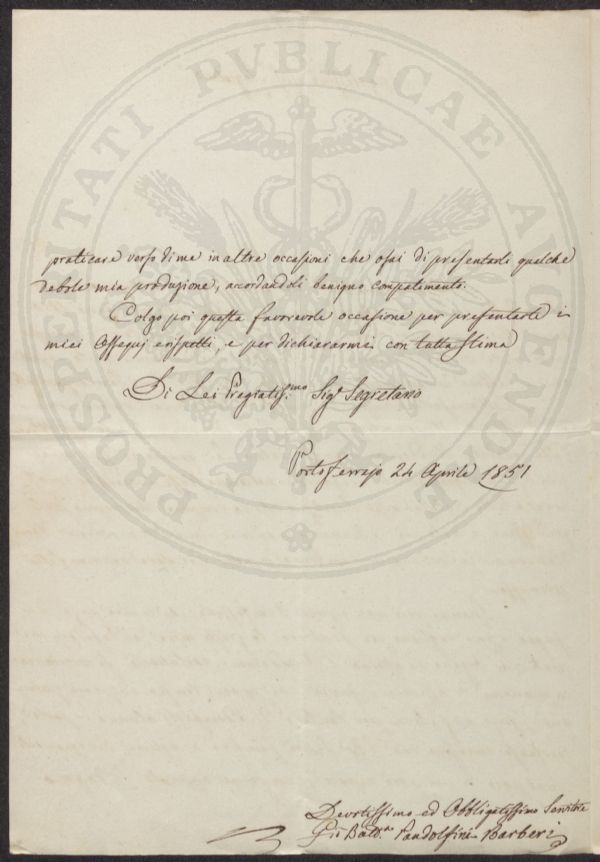 PROSPERITATI PVBLICAE AVGENDAE
praticare verso di me in altre occasioni che osai di presentarli qualche
debole mia produzione, acordandoli benigno compatimento.
Colgo poi questa favorevole occasione per presentarle i
miei ossequj e rispetti, e per dichiararmi con tutta stima
Di Lei Pregiatiss.mo Sigr Segretario
Portoferrajo 24 Aprile 1851
Devotissimo ed Obbligatissimo Servitore
Gio Batta Pandolfini Barberi